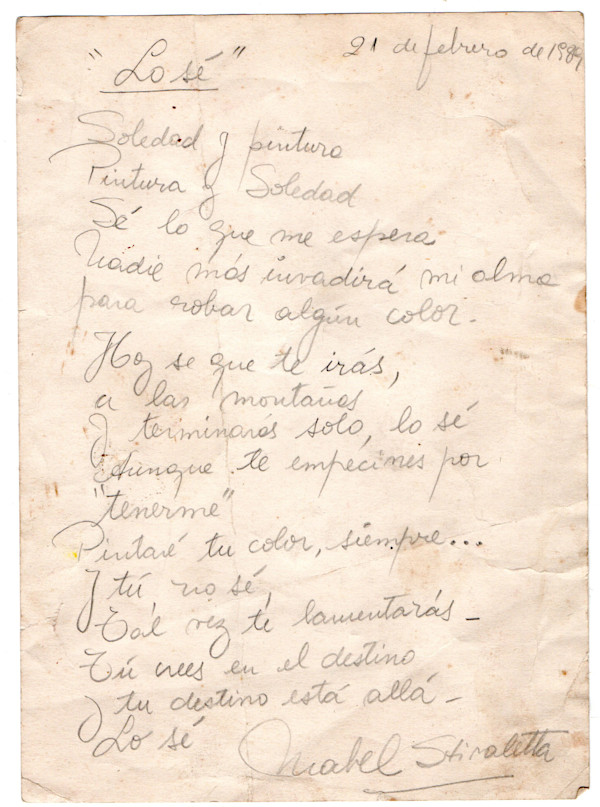 21 de febrero de 1989
"Lo sé"
Soledad y pintura
Pintura y Soledad
Sé lo que me espera
Nadie más invadirá mi alma
para robar algún color.
Hoy se que te irás,
a las montañas
Y terminarás solo, lo sé
Aunque te empecines por
"tenerme"
Pintaré tu color, siempre...
Y tú no sé,
Tal vez te lamentarás -
Tú crees en el destino
Y tu destino está allá -
Lo sé
Mabel